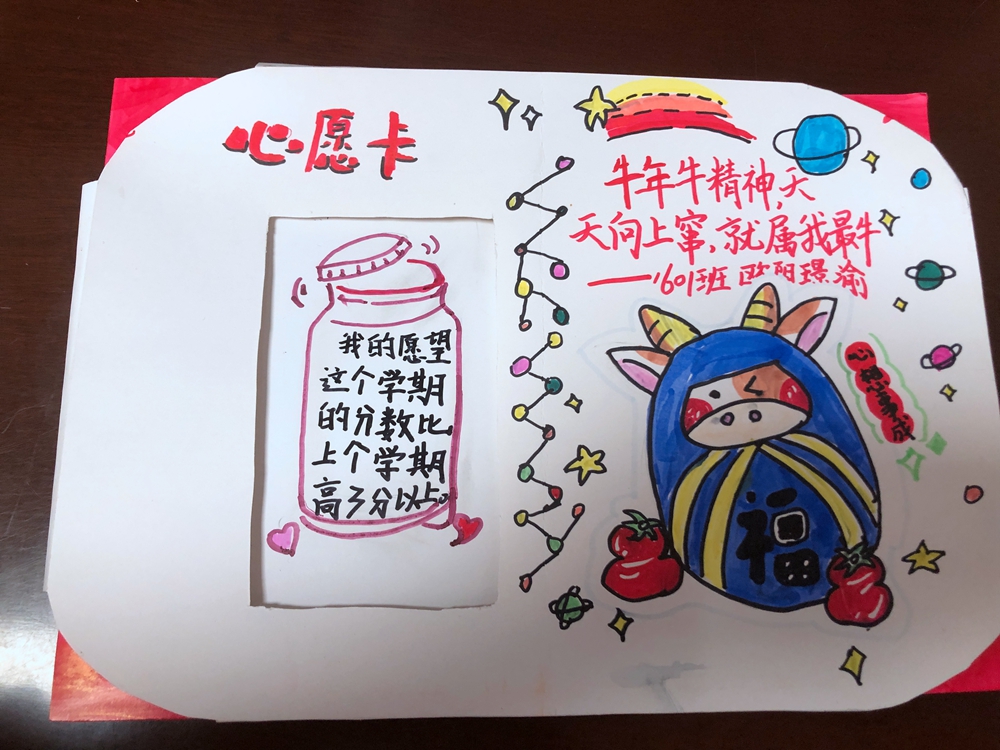 心愿卡
我的愿望
这个学期
的分数比
上个学期
高3分以上。
牛年牛精神,天
天向上窜,就属我最牛
——1601班 欧阳璟渝
心想事成
福